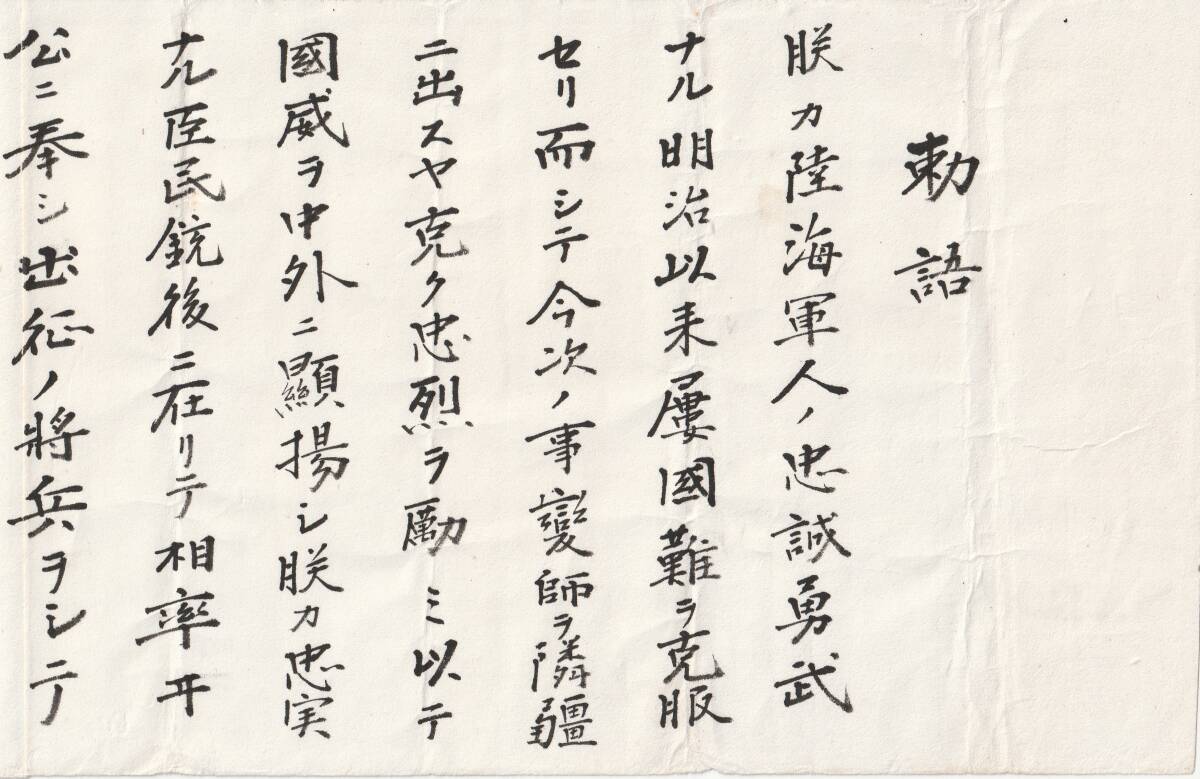 勅語
朕カ陸海軍人ノ忠誠勇武
ナル明治以来屢國難ヲ克服
セリ而シテ今次ノ事變師ヲ隣疆
ニ出スヤ克ク忠烈ヲ勵ミ以テ
國威ヲ中外ニ顯揚シ朕カ忠実
ナル臣民銃後ニ在リテ相率ヰ
公ニ奉シ出征ノ將兵ヲシテ